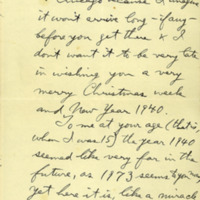 Chicago because I imagine
it won't arrive long - if any -
before you get there & I
don't want it to be very late
in wishing you a very
merry Christmas week
and New Year 1940.
To me at your age (that is,
when I was 15) the year 1940
seemed like very far in the
future, as 1973 seems to you now
yet here it is, like a miracle